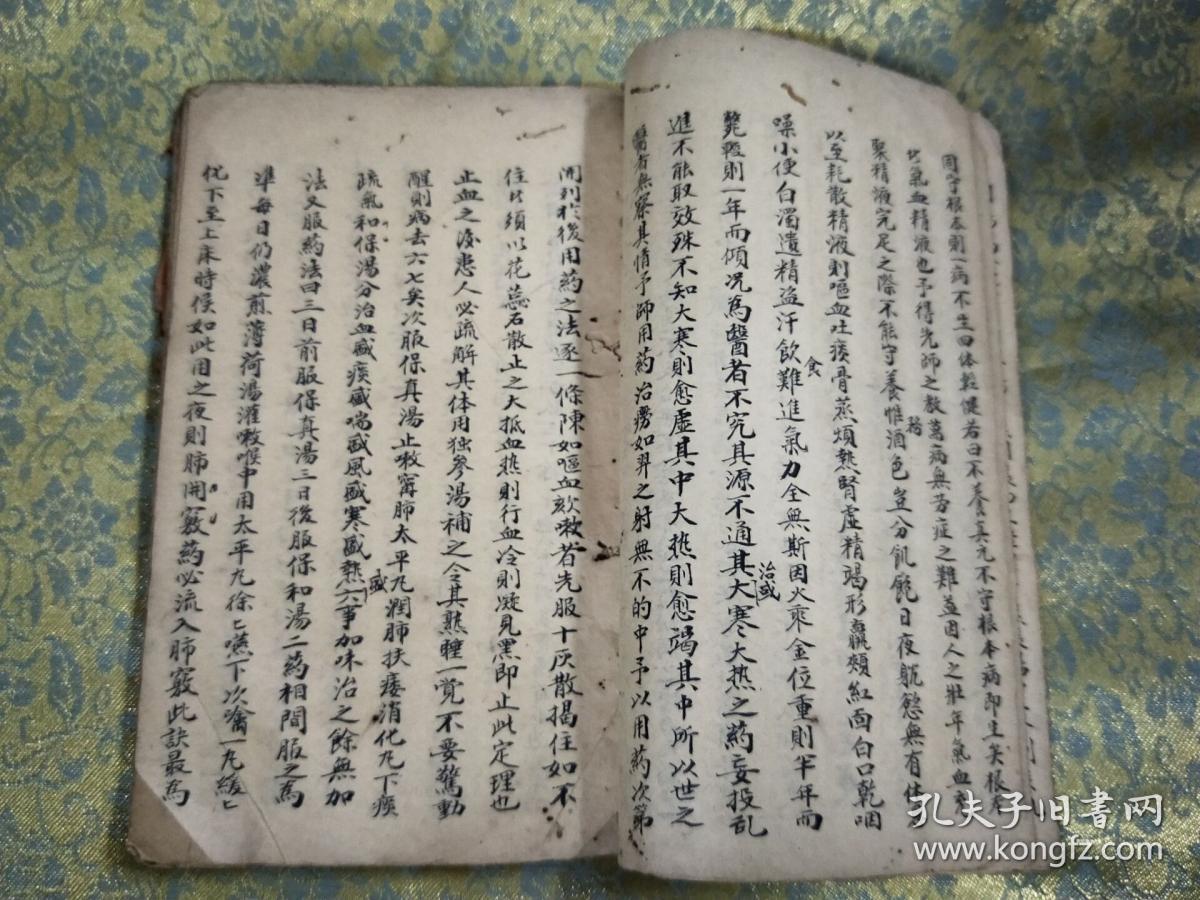 固守根本則一病不生四体輕健若曰不養真元不守根本病即生矣根本
者氣血精液也予得先師之教萬病無勞症之難盖因人之壮年氣血充
聚精液完足之際不能守養惟酒色豈分飢飽日夜躭慾無有休
以至耗散精液則嘔血吐痰骨蒸煩熱腎虚精竭形羸頰紅面白口乾咽
噪小便白濁遺精盗汗飲食難進氣力全無斯因火乘金位重則半年而
斃輕則一年而傾况爲醫者不究其源不通其治或大寒大热之药妄投乱
進不能取效殊不知大寒則愈虚其中大热則愈竭其中所以世之
醫者無察其情予師用药治癆如羿之射無不的中予以用药次第
開列於後用药之法逐一條陳如嘔血欬嗽者先服十灰散揭住如不
住者須以花蕊石散止之大抵血热則行血冷則凝見黑即止此定理也
止血之後患人必疏解其体用独參湯補之令其熟睡一覺不要驚動
醒則病去六七矣次服保真湯止嗽寧肺太平丸潤肺扶痿消化丸下痰
疏氣和保湯分治血盛痰盛喘盛風盛寒盛热盛六事加味治之餘無加
法又服药法曰三日前服保真湯三日後服保和湯二药相間服之爲
準每日仍濃煎薄荷湯灌嗽喉中用太平丸徐匕嚥下次噙一丸緩匕
化下至上床時候如此用之夜則肺開竅药必流入肺竅此訣最爲
孔夫子旧書网
www.kongfz.com